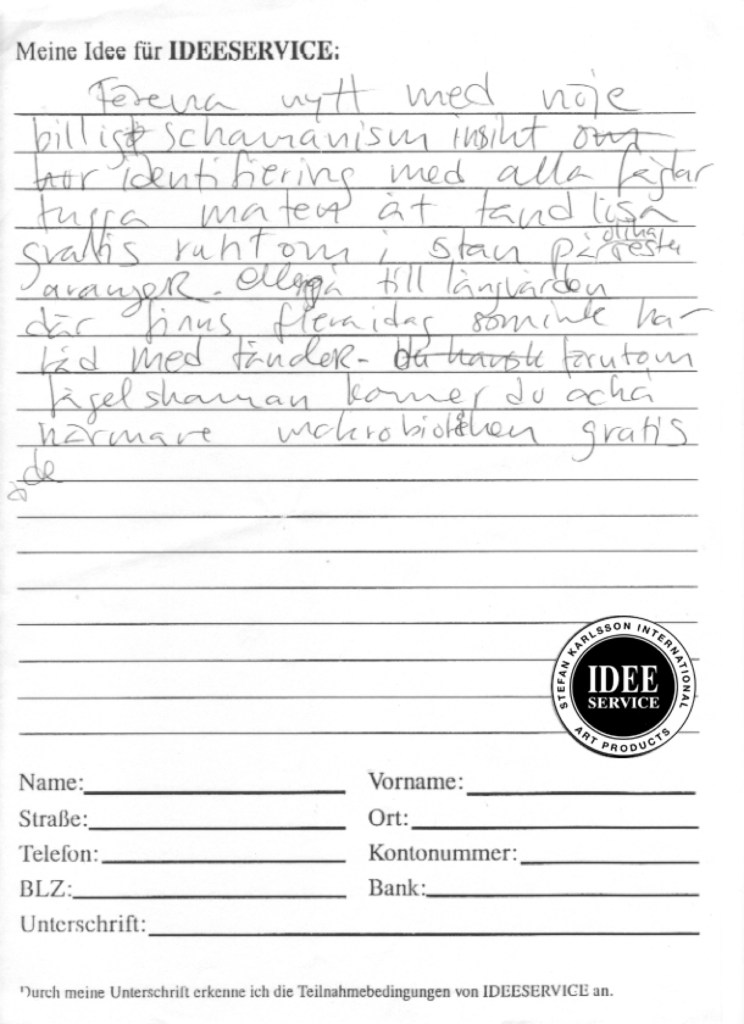 Meine Idee für IDEESERVICE:
Förena nytt med nöje
billigt schamanism insikt om
hur identifiering med alla fåglar
tugga maten åt tandlösa
gratis runtom i stan på olika
aranger. eller gå till långvården
där finns flera idag som inte har
råd med tänder. förutom
fågelshaman kommer du också
närmare makrobiotiken gratis
de
STEFAN KARLSSON INTERNATIONAL
IDEE
SERVICE
ART PRODUCTS
Name: Vorname:
Straße: Ort:
Telefon: Kontonummer:
BLZ: Bank:
Unterschrift:
Durch meine Unterschrift erkenne ich die Teilnahmebedingungen von IDEESERVICE an.